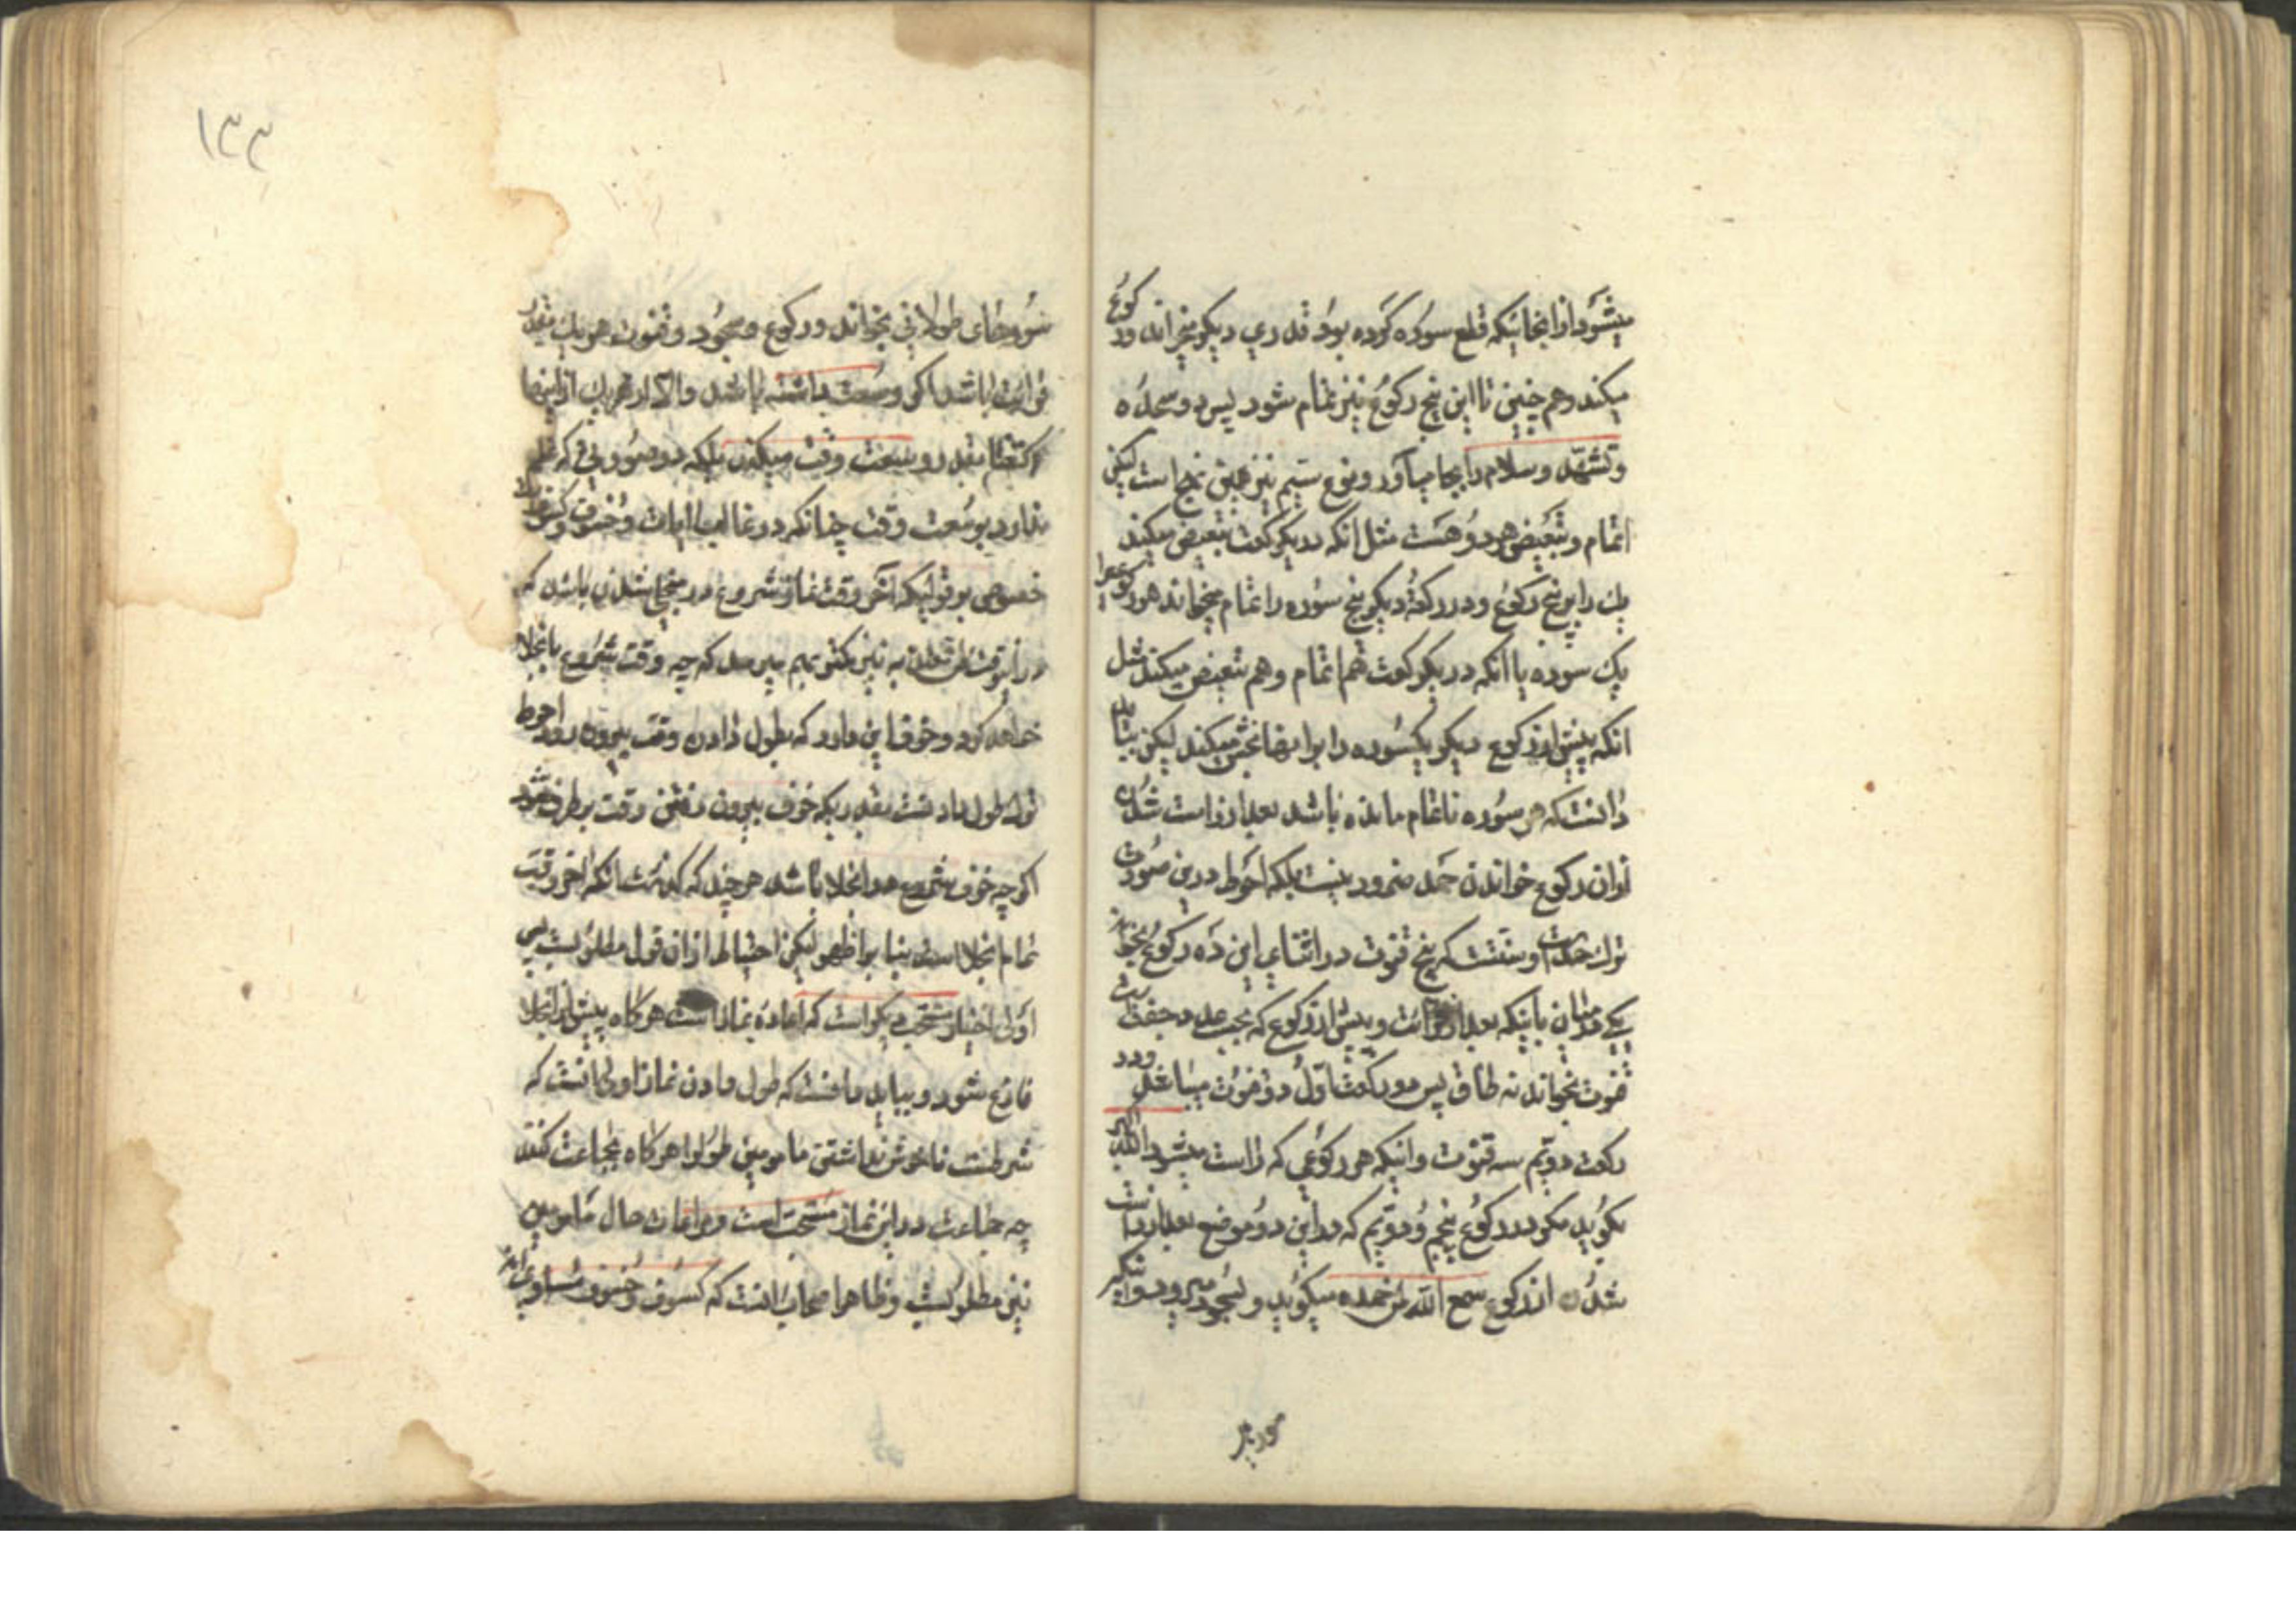 میشود از انجائیکه قطع سوره کرده بود قدری دیکر میخواند و رکوع
میکند و همچنین تا این پنج رکوع نیز تمام شود پس دو سجده
و تشهد و سلام را بجا میآورد و نوع سیم نیز بهمین نهج است لیکن
اتمام و تبعیض هر دو هست مثل انکه در یکرکعت تبعیض میکند
یک را بر پنج رکوع و در رکعة دیکر پنج سوره را تمام میخواند هر رکوعیرا
یک سوره یا انکه در یکرکعت هم اتمام و هم تبعیض میکند مثل
انکه پیش از رکوع دیکر یکسوره را بر انها بخش میکند لیکن بباید
دانست که هر سوره ناتمام مانده باشد بعد از راست شدن
از ان رکوع خواندن حمد ضرور نیست بلکه احوط درین صورت
ترک حمد است و سنتست که پنج قنوت در اثنای این ده رکوع بخواند
یکی در میان باینکه بعد از قرائت و پیش از رکوع که بحسب عدد جفت است
قنوت بخواند نه طاق پس در رکعت اول دو قنوت میباشد و در
رکعت دویم سه قنوت و اینکه هر رکوعی که راست میشود الله اکبر
بکوید مکر در رکوع پنجم و دویم که در این دو موضع بعد از راست
شدن از رکوع سمع الله لمن حمده میکوید و بسجود میرود و اینکه
سوره
سورهای طولانی بخواند و رکوع و سجود و قنوت هر یک بقدر
قرائت باشد اکر وسعت داشته باشد و الا از هر یک از اینها
اکتفا بقدر وسعت وقت میکند بلکه در صورتی که علم
ندارد بوسعت وقت چنانکه در غالب ایات و خسوف و کسوفها
خصوص بر قولیکه آخر وقت نماز شروع در منجلی شدن باشد که
در انوقت
خواهد کرد و خوف این دارد که بطول دادن وقت بیرون رود احوط
ترک طول دادنست بقدریکه خوف بیرون رفتن وقت بر طرف شود
اکر چه خوف شروع در انجلا باشد هر چند که کذشت انکه اخر وقت
تمام انجلا است بنا بر اظهر لیکن احتیاط از ان قول مطلوبست پس
اولی اختیار مستحب دیکر است که اعاده نماز است هرکاه پیش از انجلا
فارغ شود و بباید دانست که طول دادن نماز اولی انست که
شرطست ناخوش نداشتن مامومین طول را هرکاه بجماعت کنند
چه جماعت در این نماز مستحب است و مراعات حال مامومین
نیز مطلوبست و ظاهر اصحاب انست که کسوف و خسوف مساوی‌اند
۱۳۳